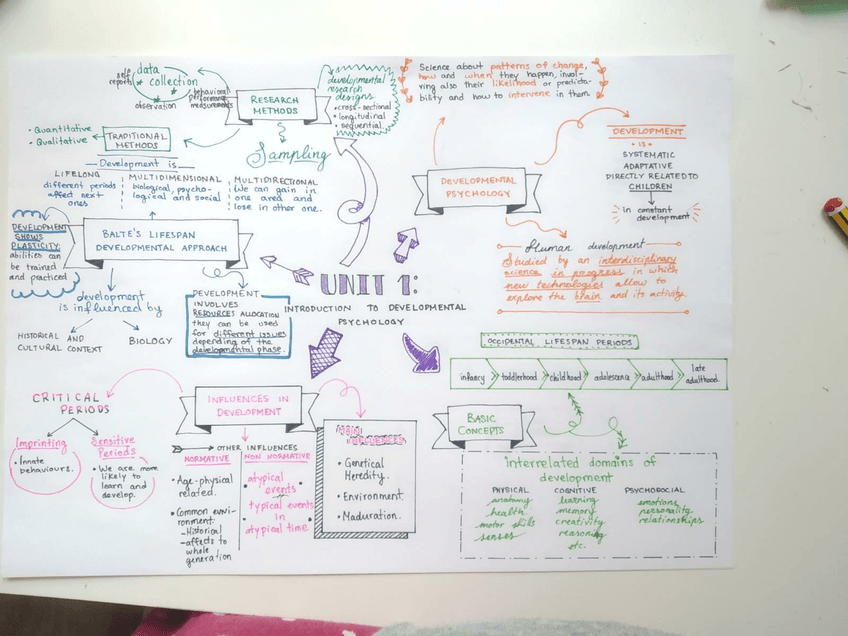 UNIT 1:
INTRODUCTION TO DEVELOPMENTAL
PSYCHOLOGY
RESEARCH
METHODS
data
collection
self
reports
observation
behavioral
performance
measurements
developmental
research
designs
• cross-sectional
• longitudinal
• sequential.
Sampling
TRADITIONAL
METHODS
• Quantitative
• Qualitative
BALTE'S LIFESPAN
DEVELOPMENTAL APPROACH
Development is
LIFELONG
different periods
affect next
ones
MULTIDIMENSIONAL
biological, psycho-
logical and social
MULTIDIRECTIONAL
We can gain in
one area and
lose in other one.
DEVELOPMENT
SHOWS
PLASTICITY:
abilities can
be trained
and practiced
development
is influenced by
HISTORICAL AND
CULTURAL CONTEXT
BIOLOGY
DEVELOPMENT
INVOLVES
RESOURCES ALLOCATION
they can be used
for different issues
depending of the
developmental phase.
DEVELOPMENTAL
PSYCHOLOGY
Science about patterns of change,
how and when they happen, invol-
ving also their likelihood or predicta-
bility and how to intervene in them.
DEVELOPMENT
• IS •
SYSTEMATIC
ADAPTATIVE
DIRECTLY RELATED TO
CHILDREN
in constant
development
Human development
Studied by an interdisciplinary
science in progress in which
new technologies allow to
explore the brain and its activity.
INFLUENCES IN
DEVELOPMENT
CRITICAL
PERIODS
Imprinting
• Innate
behaviours.
Sensitive
Periods
• We are more
likely to
learn and
develop.
OTHER INFLUENCES
NORMATIVE
• Age-physical
related.
• Common envi-
ronment.
- Historical
- affects to
whole
generation
NON NORMATIVE
atypical
events
typical events
in
atypical time
MAIN
INFLUENCES
• Genetical
Heredity.
• Environment.
• Maduration.
BASIC
CONCEPTS
OCCIDENTAL LIFESPAN PERIODS
infancy
toddlerhood
childhood
adolescence
adulthood
late
adulthood.
Interrelated domains of
development
PHYSICAL
anatomy
health
motor skills
senses
COGNITIVE
learning
memory
creativity
reasoning
etc.
PSYCHOSOCIAL
emotions
personality
relationships